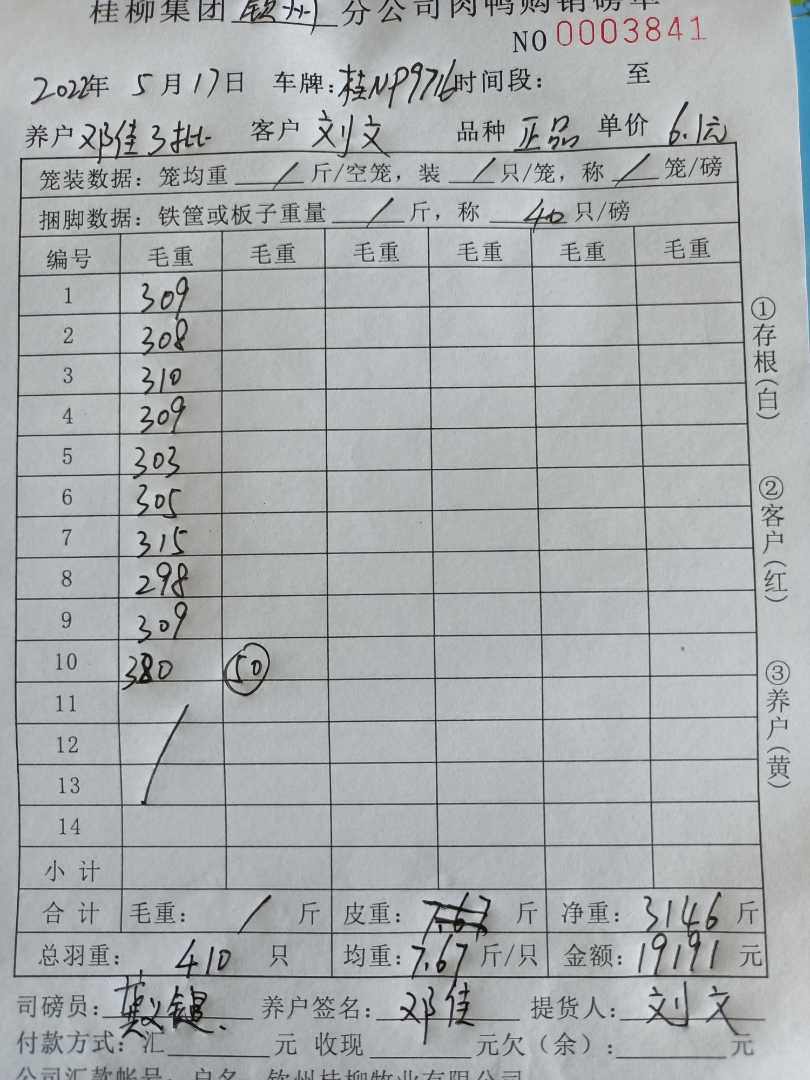 桂柳集团 钦州 分公司肉鸭购销磅单
NO 0003841
2022年 5月17日 车牌:桂NP9716时间段: 至
养户 邓佳3批 客户 刘文 品种 正品 单价 6.1元
笼装数据: 笼均重 / 斤/空笼, 装 / 只/笼, 称 / 笼/磅
捆脚数据: 铁筐或板子重量 / 斤, 称 40 只/磅
编号 毛重 毛重 毛重 毛重 毛重 毛重
1 309
2 308
3 310
4 309
5 303
6 305
7 315
8 298
9 309
10 380 50
11 /
12
13
14
小计
合计 毛重: / 斤 皮重: 7.67 斤 净重: 3146 斤
总羽重: 410 只 均重: 7.67 斤/只 金额: 19191 元
司磅员: 养户签名: 邓佳 提货人: 刘文
付款方式: 汇 元 收现 元欠(余): 元
公司汇款帐号: 户名 钦州桂柳牧业有限公司
①存根(白)
②客户(红)
③养户(黄)